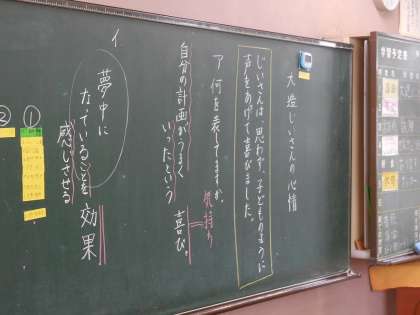 大造じいさんの心情
じいさんは、思わず、子どものように
声をあげて喜びました。
ア 何を表してますか。
気持ち
自分の計画がうまく
いったという
喜び。
イ
夢中に
なっていることを
感じさせる
効果
①
②
学習予定表